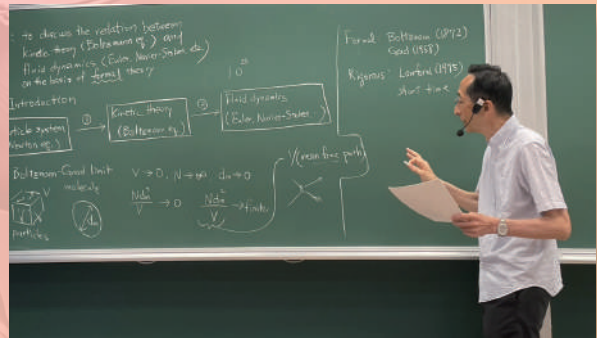 to discuss the relation between
kinetic theory (Boltzmann eq.) and
fluid dynamics (Euler, Navier-Stokes, etc.)
on the basis of formal theory
Introduction
Particle system
(Newton eq.)
①
Kinetic theory
(Boltzmann eq.)
②
Fluid dynamics
(Euler, Navier-Stokes...)
Boltzmann-Grad limit
molecule
V
particles
dm
V→0, N→∞ dm→0
Ndm³/V → 0
Ndm²/V → finite
1/(mean free path)
Formal Boltzmann (1872)
Grad (1958)
Rigorous: Lanford (1975)
short time